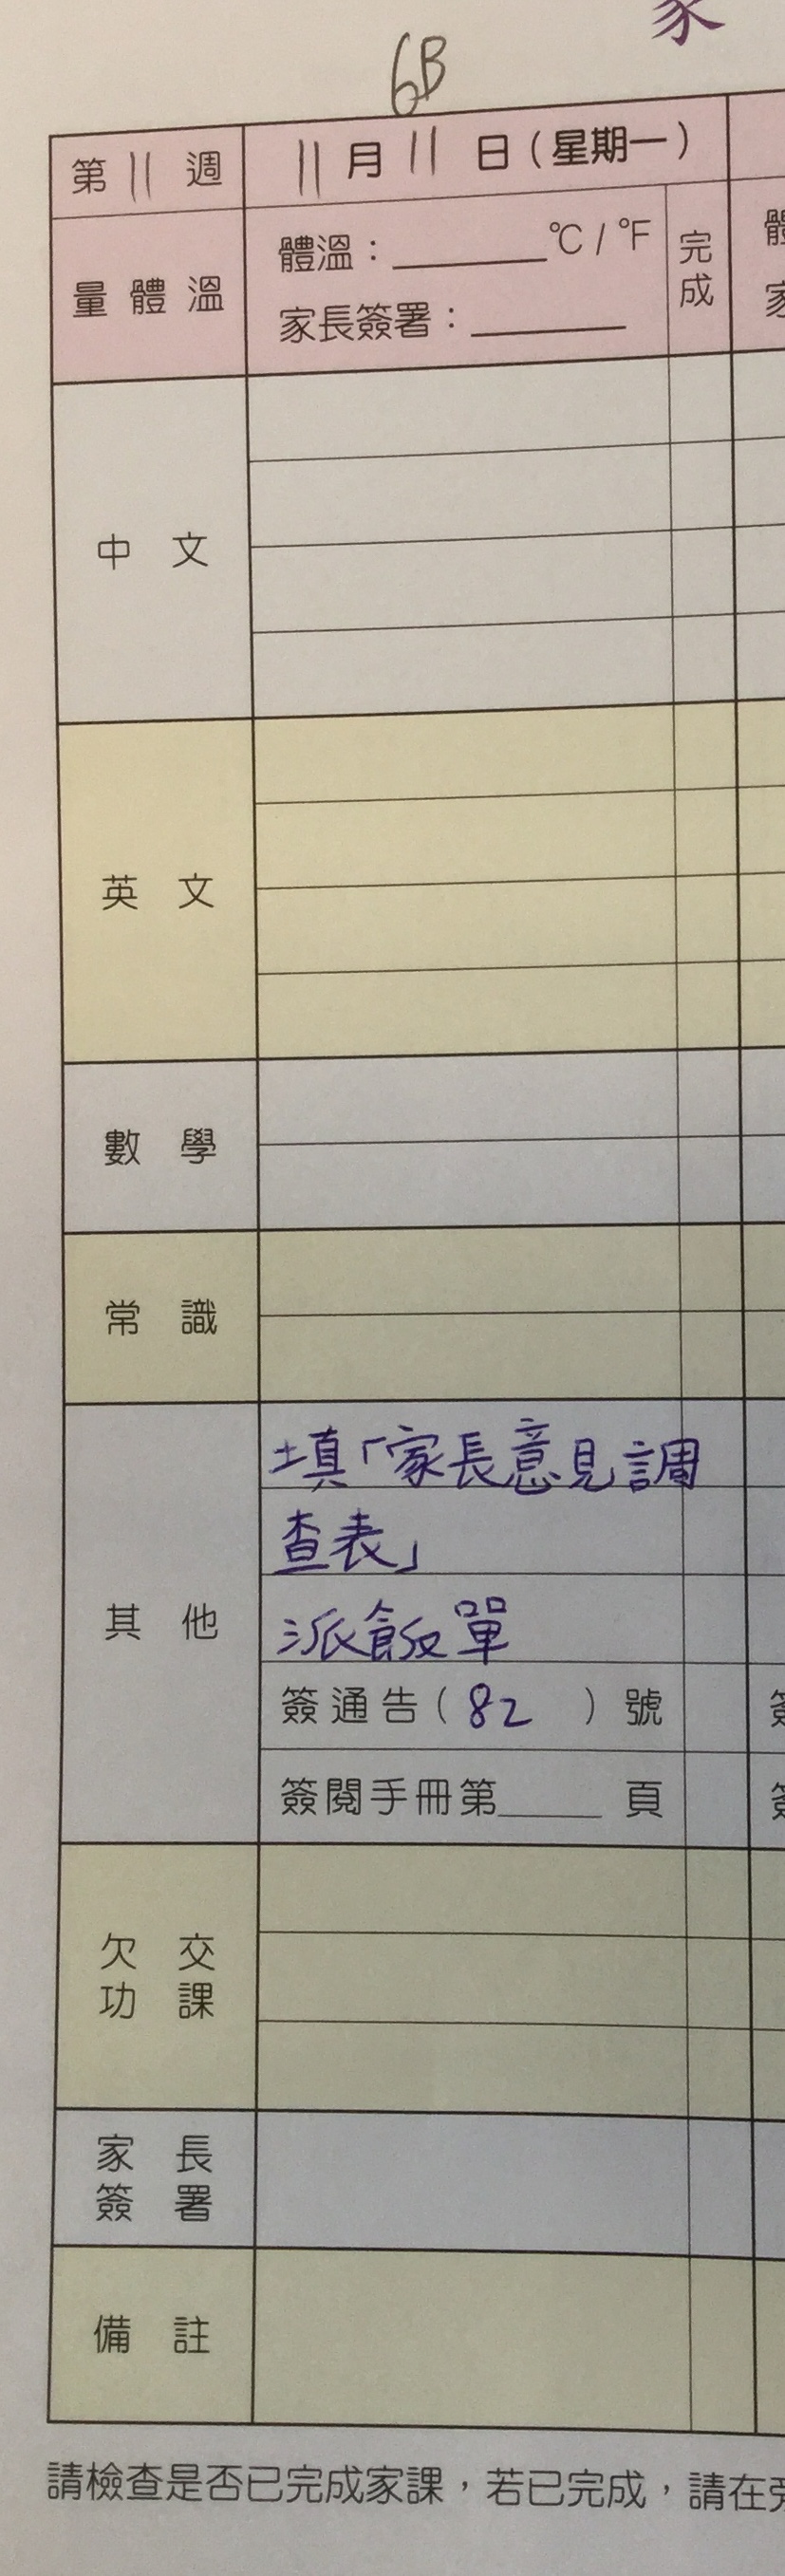 家
6B
第 11 週
11 月 11 日(星期一)
量體溫
體溫:______℃ / ℉
家長簽署:______
完成
中文
英文
數學
常識
其他
填「家長意見調
查表」
派飯單
簽通告( 82 )號
簽閱手冊第____頁
欠交
功課
家長
簽署
備註
請檢查是否已完成家課,若已完成,請在